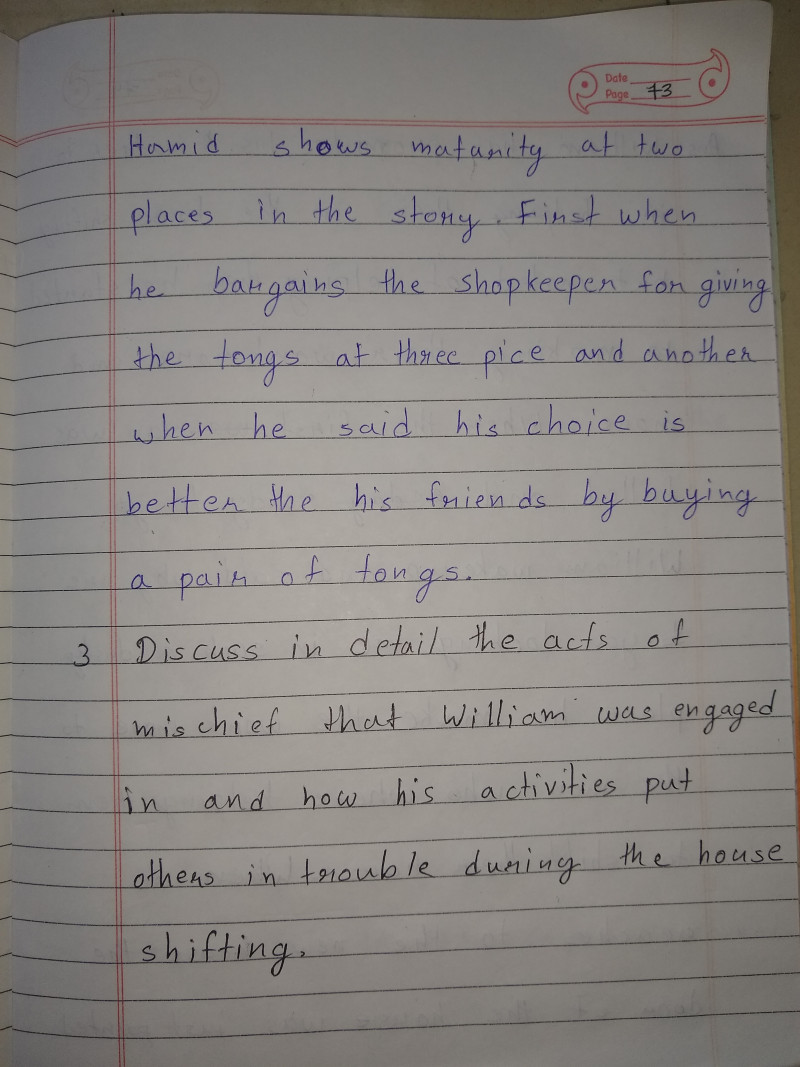 Date
Page 73
Hamid shows maturity at two
places in the story. First when
he bargains the shopkeeper for giving
the tongs at three pice and another
when he said his choice is
better the his friends by buying
a pair of tongs.
3 Discuss in detail the acts of
mischief that William was engaged
in and how his activities put
others in trouble during the house
shifting.